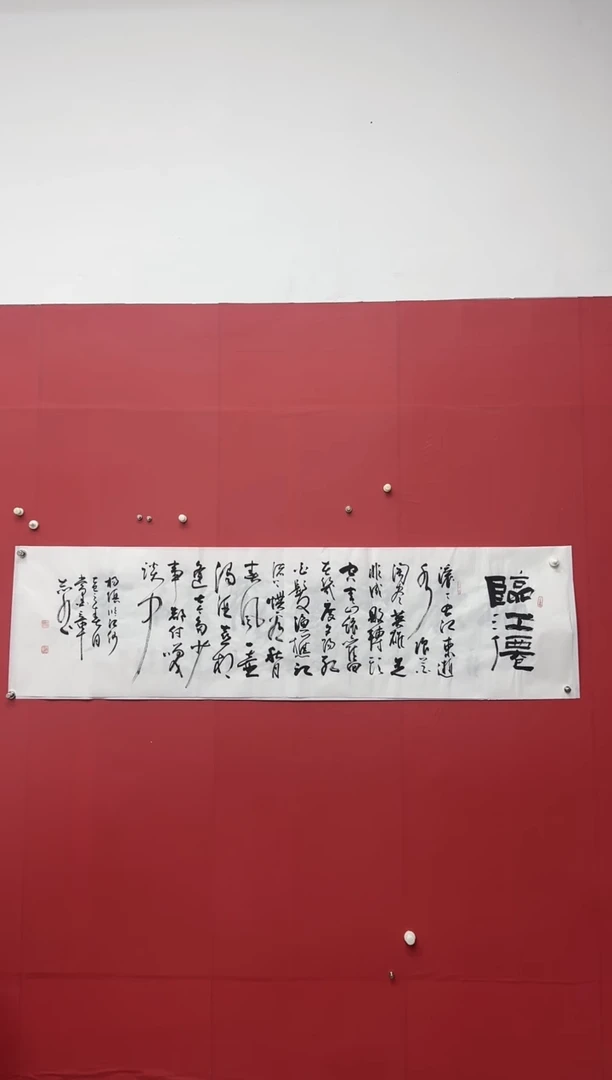 臨江僊
滚滚長江東逝
水浪花
淘盡英雄是
非成敗轉頭
空青山依舊
在幾度夕陽紅
白髮漁樵江
渚上慣看秋月
春風一壺
濁酒喜相
逢古今多少
事都付笑
談中
楊慎臨江仙